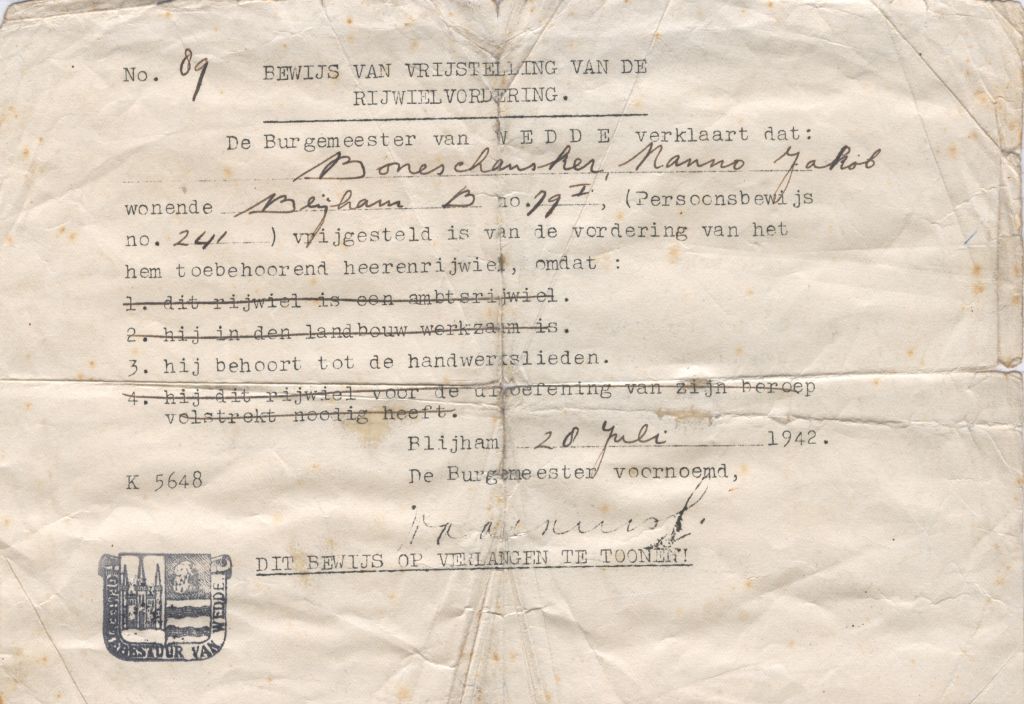 No. 89 BEWIJS VAN VRIJSTELLING VAN DE
RIJWIELVORDERING.
De Burgemeester van WEDDE verklaart dat:
Boneschansker, Nanno Jakob
wonende Blijham B no. 79 I, (Persoonsbewijs
no. 241 ) vrijgesteld is van de vordering van het
hem toebehoorend heerenrijwiel, omdat :
1. dit rijwiel is een ambtsrijwiel.
2. hij in den landbouw werkzaam is.
3. hij behoort tot de handwerkslieden.
4. hij dit rijwiel voor de uitoefening van zijn beroep
volstrekt noodig heeft.
Blijham 28 Juli 1942.
K 5648 De Burgemeester voornoemd,
DIT BEWIJS OP VERLANGEN TE TOONEN!
BESTUUR VAN WEDDE